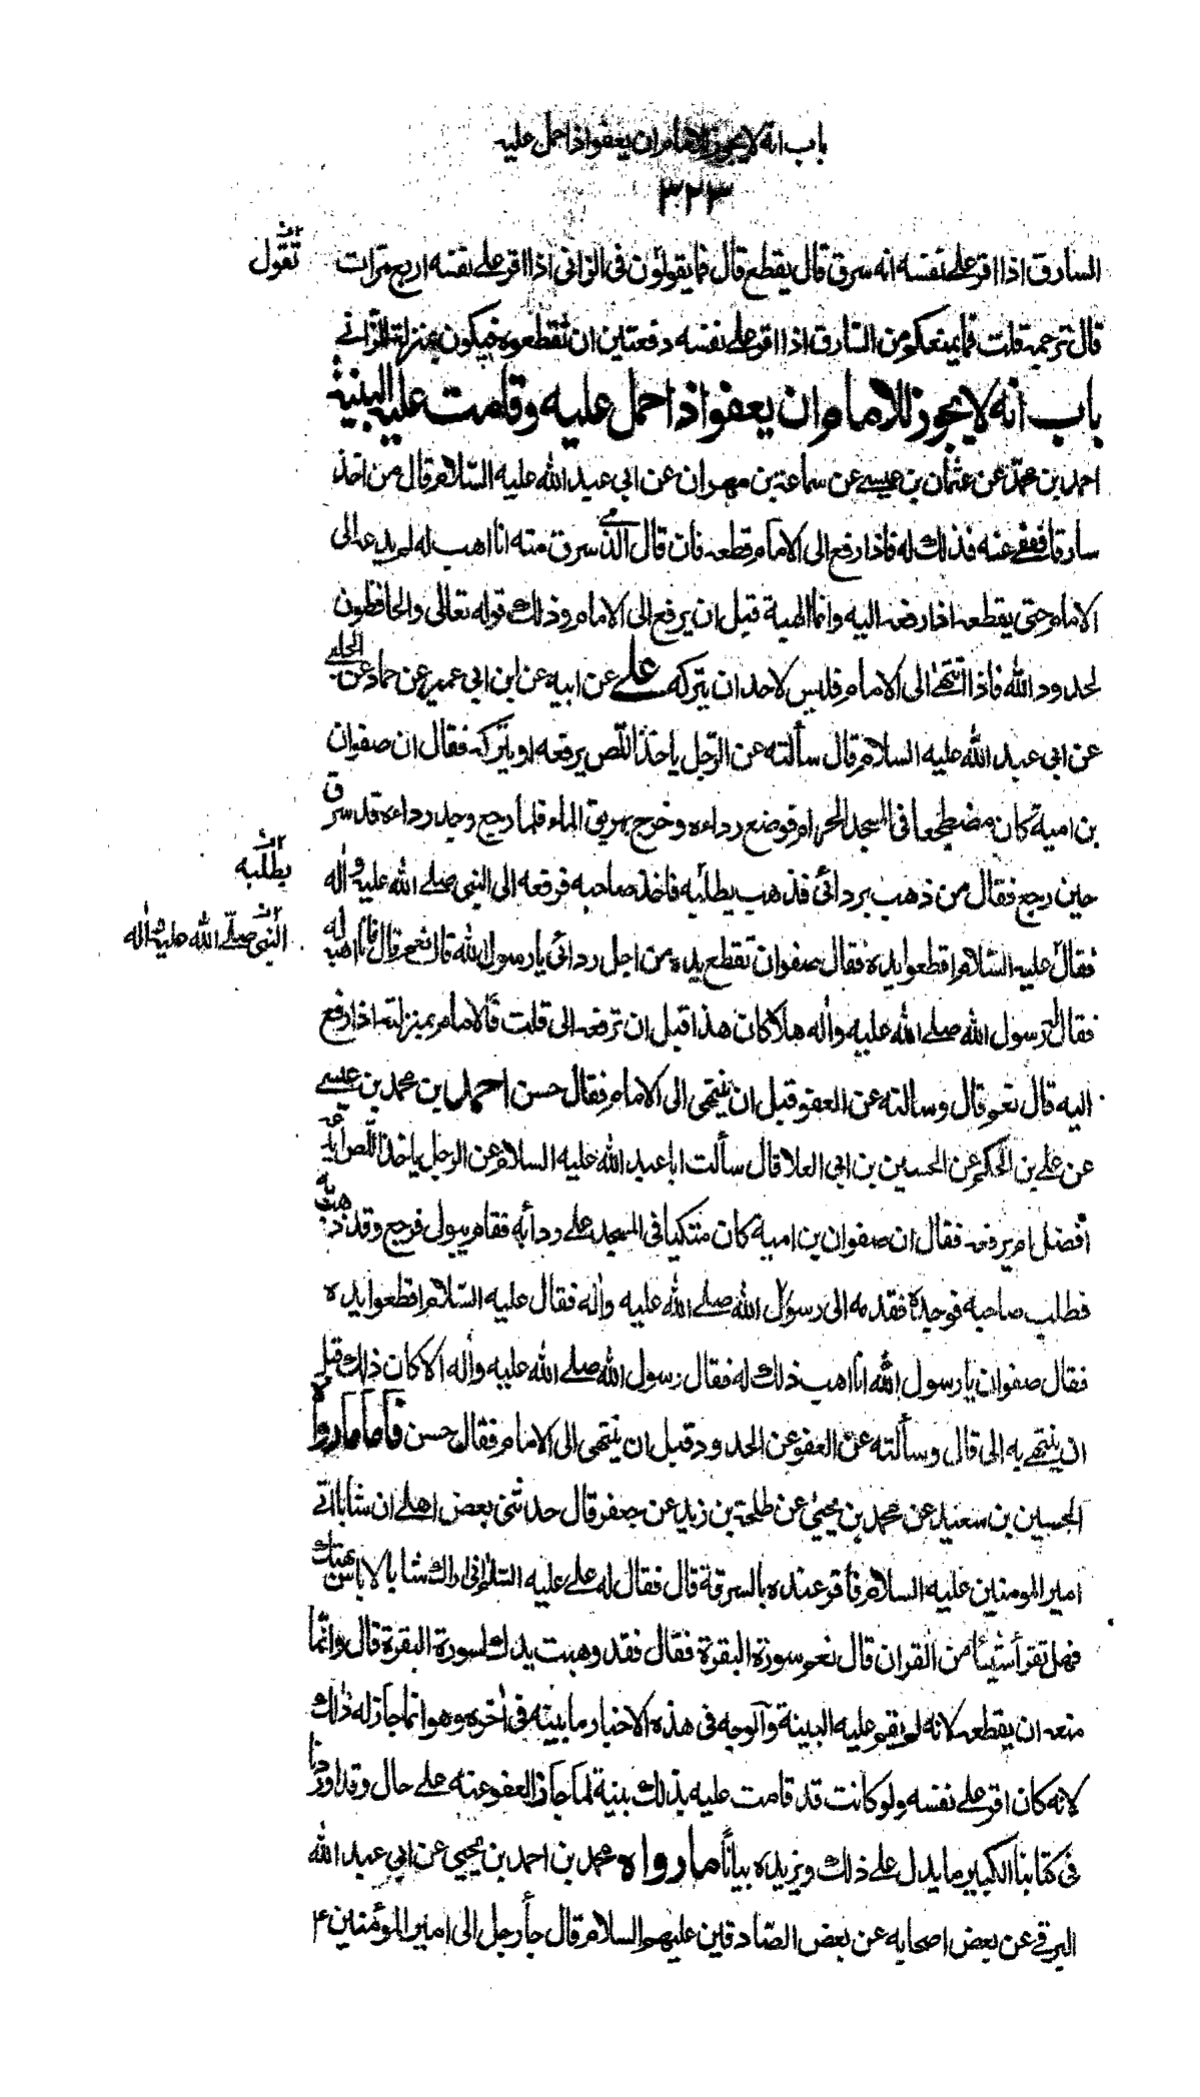 باب انه لا يجوز للامام ان يعفو اذا حمل عليه
٣٢٣
السارق اذا اقر على نفسه انه سرق قال يقطع قال فما يقولون فى الزانى اذا اقر على نفسه اربع مرات
تقول
قال ترجمه قلت فما يمنعكم من السارق اذا اقر على نفسه دفعتين ان تقطعوه فيكون بمنزلة الزانے
باب انه لا يجوز للامام ان يعفو اذا حمل عليه وقامت عليه البينة
احمد بن محمد عن عثمان بن عيسے عن سماعة بن مهران عن ابى عبد الله عليه السلام قال من اخذ
سارقا فعفے عنه فذلك له فاذا رفع الى الامام قطعه فان قال الذے سرق منه انا اهب له لم يدعه الى
الامام حتى يقطعه اذا رفعه اليه وانما الهبة قبل ان يرفع الى الامام وذلك قوله تعالى والحافظون
لحدود الله فاذا انتهىٰ الى الامام فليس لاحد ان يتركه علے عن ابيه عن ابن ابى عمير عن حماد عن الحلبے
عن ابى عبد الله عليه السلام قال سألته عن الرجل ياخذ اللص يرفعه او يتركه فقال ان صفوان
بن امية كان مضطجعا فى المسجد الحرام فوضع رداءه وخرج يهريق الماء فلما رجع وجد رداءه قد سرق
حين رجع فقال من ذهب بردائى فذهب يطلبه فاخذ صاحبه فرفعه الى النبى صلے الله عليه واله
يطلبه
فقال عليه السلام اقطعوا يده فقال صفوان تقطع يده من اجل ردائى يا رسول الله قال نعم قال فانا اهبه له
النبى صلے الله عليه واله
فقال رسول الله صلے الله عليه واله هلا كان هذا قبل ان ترفعه الى قلت فالامام بمنزلته اذا رفع
اليه قال نعم قال وسالته عن العفو قبل ان ينتهى الى الامام فقال حسن احمد بن محمد بن عيسے
عن علے بن الحكم عن الحسين بن ابى العلا قال سألت ابا عبد الله عليه السلام عن الرجل ياخذ اللص يدعه
افضل ام يرفعه فقال ان صفوان بن امية كان متكيا فى المسجد علے ردائه فقام يبول فرجع وقد ذهب به
فطلب صاحبه فوجده فقدمه الى رسول الله صلے الله عليه واله فقال عليه السلام اقطعوا يده
فقال صفوان يا رسول الله انا اهب ذلك له فقال رسول الله صلے الله عليه واله الا كان ذلك قبل
ان ينتهے به الى قال وسألته عن العفو عن الحدود قبل ان ينتهى الى الامام فقال حسن فاما ما رواه
الحسين بن سعيد عن محمد بن يحيىٰ عن طلحة بن زيد عن جعفر قال حدثنى بعض اهلے ان شابا اتے
امير المومنين عليه السلام فاقر عنده بالسرقة قال فقال له علے عليه السلم انى اراك شابا لا باس بهيئتك
فهل تقرأ شيئا من القران قال نعم سورة البقرة فقال فقد وهبت يدك لسورة البقرة قال وانما
منعه ان يقطعه لانه لم يقم عليه البينة فالوجه فى هذه الاخبار ما بينه فى اخره وهو انما جاز له ذلك
لانه كان اقر علے نفسه ولو كانت قد قامت عليه بذلك بينة لما جاز العفو عنه علے حال وقد اوردنا
فى كتابنا الكبير ما يدل علے ذلك ويزيده بيانا ما رواه محمد بن احمد بن يحيى عن ابى عبد الله
البرقے عن بعض اصحابه عن بعض الصادقين عليهم السلام قال جاء رجل الى امير المؤمنين ۴